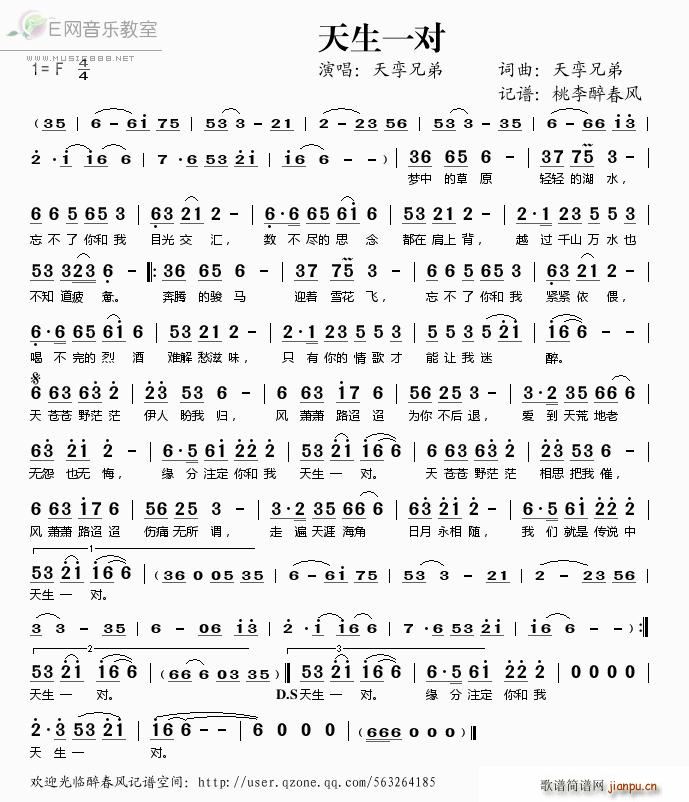 E网音乐教室
WWW.MUSIC888.COM
天生一对
1=F 4/4
演唱：天孪兄弟 词曲：天孪兄弟
记谱：桃李醉春风
(35 | 6 - 6i 75 | 53 3 - - | 2 - 23 56 | 53 3 - 35 | 6 - 66 i3 |
2·i i6 6 | 7·6 53 2i | i6 6 - - ) | 36 65 6 - | 37 75 3 - |
梦中 的草 原 轻轻 的湖 水，
6 6 5 65 3 | 63 21 2 - | 6·6 65 6i 6 | 5 3 5 3 2 - | 2·1 23 5 5 3 |
忘不了你和我 目光 交 汇， 数 不 尽的 思 念 都在肩上背， 越 过 千山万水也
53 323 6 - ‖: 36 65 6 - | 37 75 3 - | 6 6 5 65 3 | 63 21 2 - |
不知 道疲 惫。 奔腾 的骏 马 迎着 雪花 飞， 忘不了你和我 紧紧 依 偎，
6·6 65 6i 6 | 53 21 2 - | 2·1 23 5 5 3 | 5 5 3 5 2i | i6 6 - - |
喝 不 完的 烈 酒 难解 愁滋 味， 只 有 你的情歌才 能让我迷 醉。
6 63 63 2 | 23 53 6 - | 6 63 17 6 | 56 25 3 - | 3·2 35 66 6 |
天 苍苍 野茫 茫 伊人 盼我 归， 风 萧萧 路迢 迢 为你 不后 退， 爱 到 天荒 地老
63 21 2 - | 6·5 61 22 2 | 53 21 16 6 | 6 63 63 2 | 23 53 6 - |
无怨 也无 悔， 缘 分 注定 你和 我 天生 一 对。 天 苍苍 野茫 茫 相思 把我 催，
6 63 17 6 | 56 25 3 - | 3·2 35 66 6 | 63 21 2 - | 6·5 61 22 2 |
风 萧萧 路迢 迢 伤痛 无所 谓， 走 遍 天涯 海角 日月 永相 随， 我 们 就是 传说 中
1
53 21 16 6 | (36 0 05 35 | 6 - 6i 75 | 53 3 - - | 2 - 23 56 |
天生 一 对。
3 3 - 35 | 6 - 06 i3 | 2·i i6 6 | 7·6 53 2i | i6 6 - - ) :‖
2 3
53 21 16 6 | (66 6 03 35) ‖ 53 21 16 6 | 6·5 61 22 2 | 0 0 0 0 |
天生 一 对。 D.S 天生 一 对。 缘 分 注定 你和 我
2·3 53 21 | 16 6 - - | 6 0 0 0 | (666 0 0 0) ‖
天 生 一 对。
欢迎光临醉春风记谱空间：http://user.qzone.qq.com/563264185
歌谱简谱网
jianpu.cn